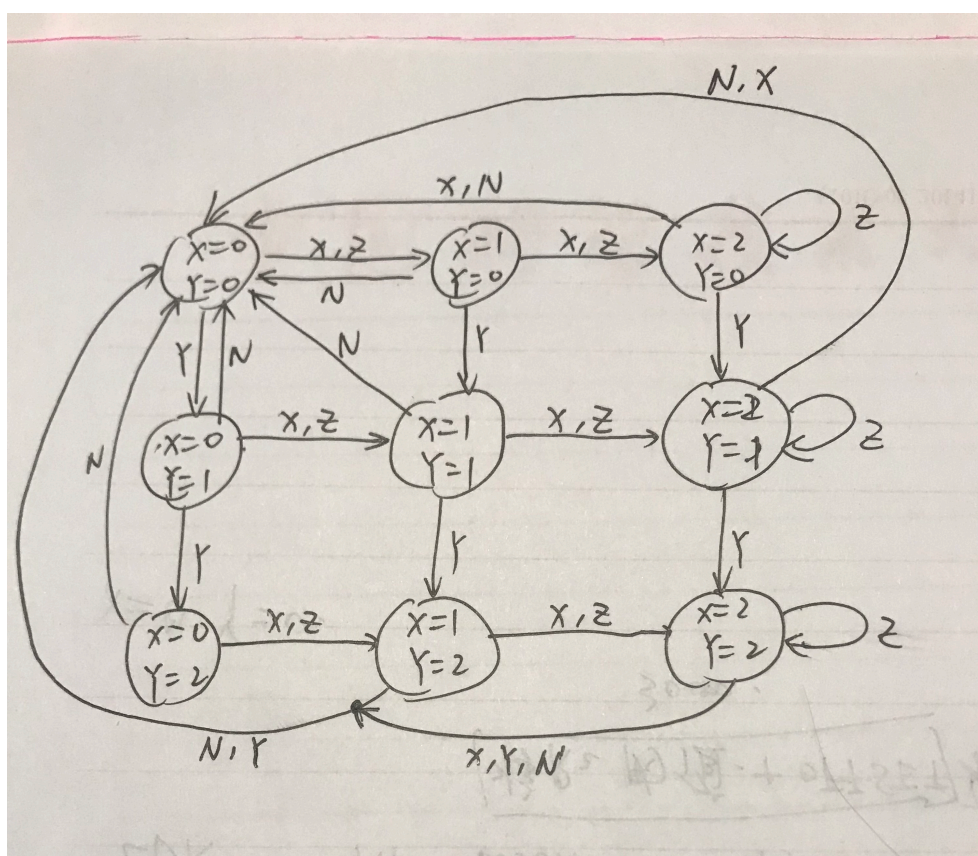 N, X
X, N
X=0
Y=0
X, Z
N
X=1
Y=0
X, Z
X=2
Y=0
Z
Y
N
N
Y
Y
X=0
Y=1
X, Z
X=1
Y=1
X, Z
Y=1
Z
N
Y
Y
Y
X=0
Y=2
X, Z
X=1
Y=2
X, Z
X=2
Y=2
Z
N, Y
X, Y, N